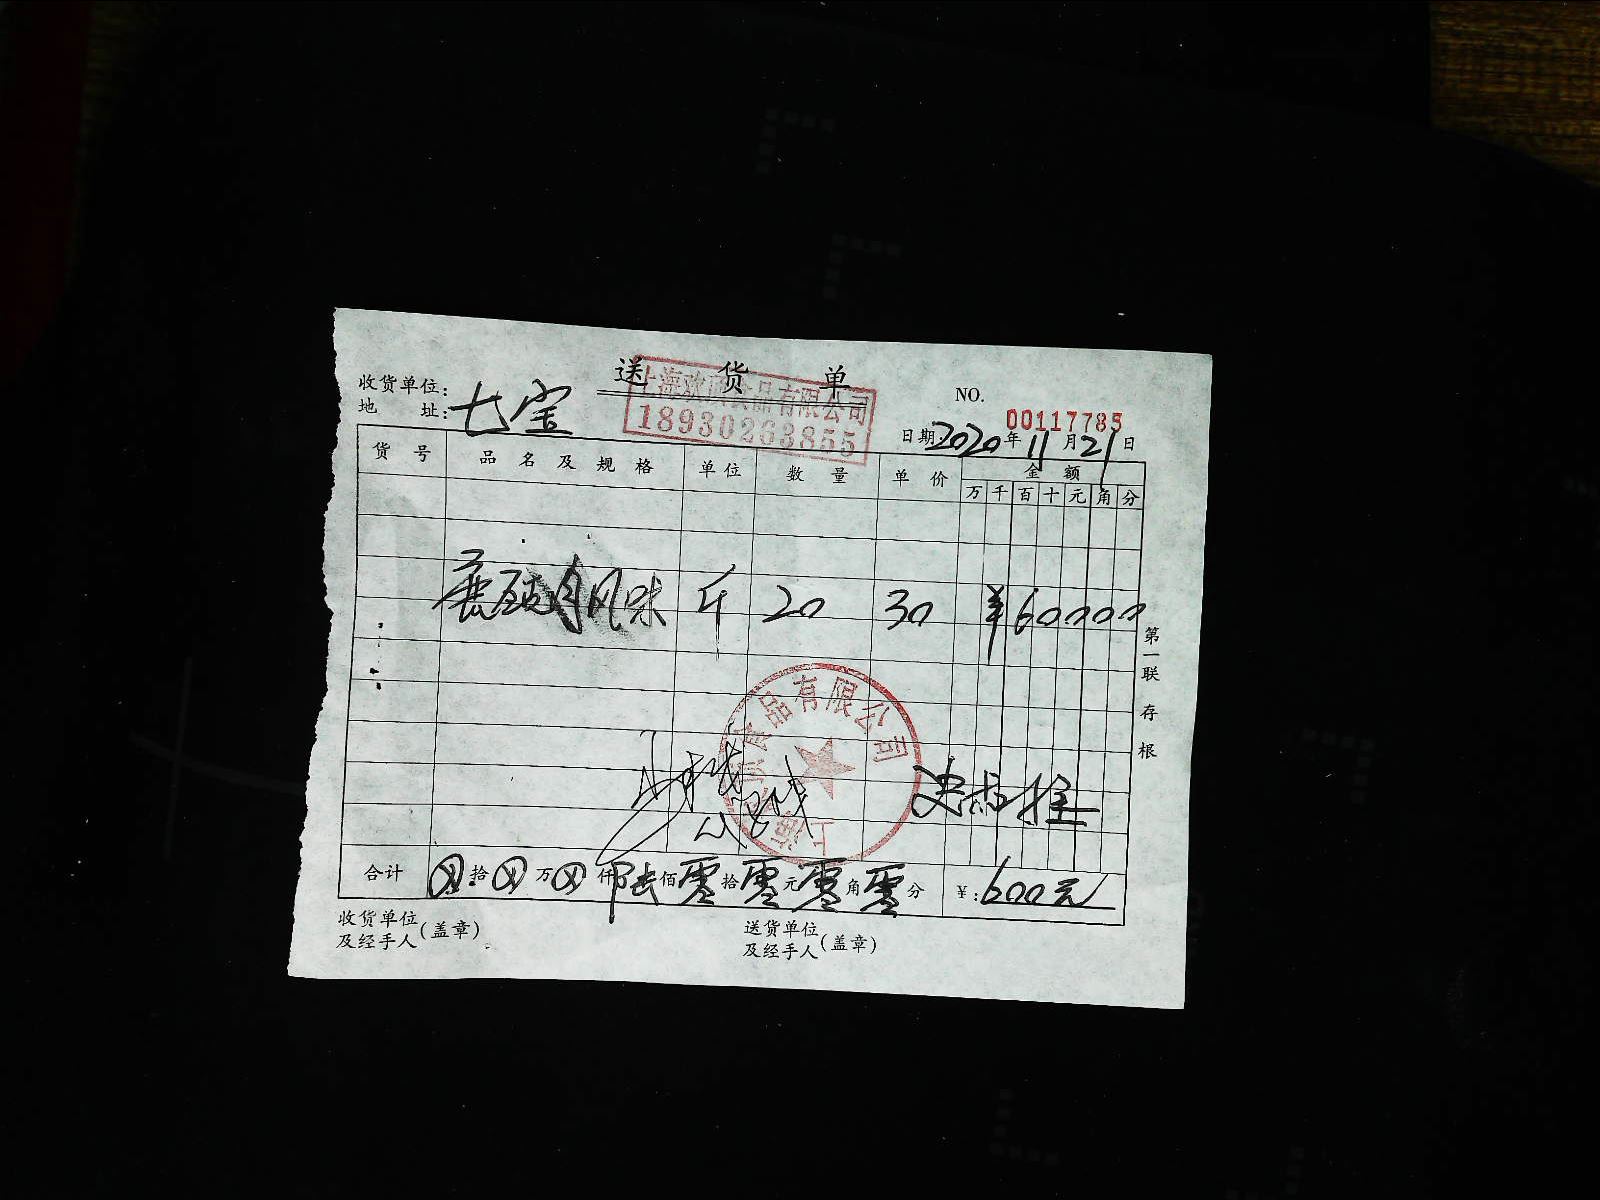 送 货 单
收货单位:
地 址: 七宝
NO.
00117785
上海 食品有限公司
18930263855
日期 2020 年 11 月 21 日
货 号 品 名 及 规 格 单位 数 量 单 价 金 额
万 千 百 十 元 角 分
风味 斤 20 30 ¥60000
第一联 存根
食品有限公司
上海
合计 ⊗ 拾 ⊗ 万 ⊗ 仟 陆 佰 零 拾 零 元 零 角 零 分 ¥: 600元
收货单位
及经手人 (盖章)
送货单位
及经手人 (盖章)